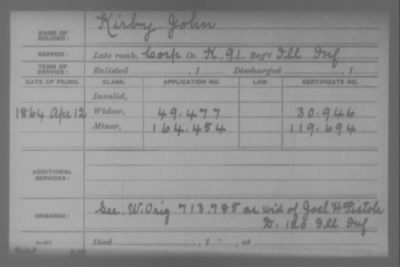 NAME OF SOLDIER: Kirby, John
SERVICE: Late rank, Corp Co. K, 91 Reg't Ill Inf
TERM OF SERVICE: Enlisted , 1 Discharged , 1
DATE OF FILING. CLASS. APPLICATION NO. LAW. CERTIFICATE NO.
Invalid,
1864 Apr 12 Widow, 49.477 30.946
Minor, 164.454 119.694
ADDITIONAL SERVICES:
REMARKS: See W. Orig 713.785 as wid of Joel H Pistole
D. 120 Ill Inf
Died , 1 , at